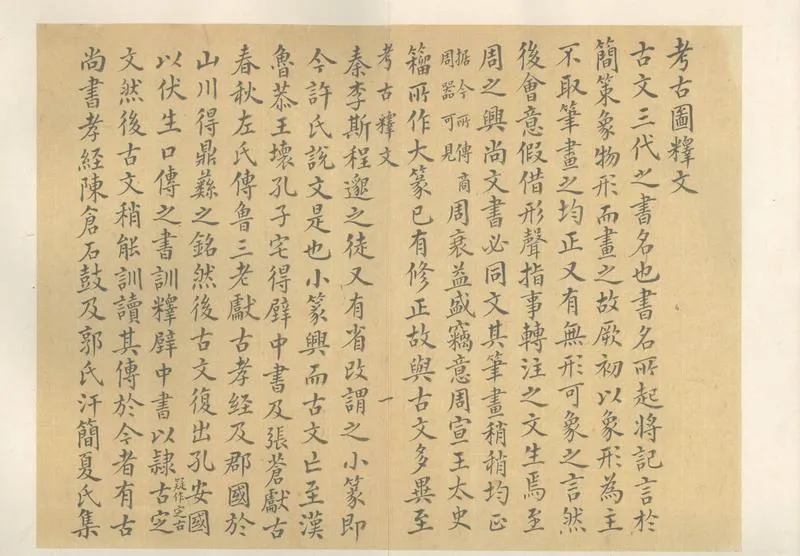 考古圖釋文
古文三代之書名也書名所起將記言於
簡策象物形而畫之故厥初以象形為主
不取筆畫之均正又有無形可象之言然
後會意假借形聲指事轉注之文生焉至
周之興尚文書必同文其筆畫稍稍均正
据今所傳商
周器可見
周衰益盛竊意周宣王太史
籀所作大篆已有修正故與古文多異至
考古釋文
一
秦李斯程邈之徒又有省改謂之小篆即
今許氏說文是也小篆興而古文亡至漢
魯恭王壞孔子宅得壁中書及張蒼獻古
春秋左氏傳魯三老獻古孝經及郡國於
山川得鼎彝之銘然後古文復出孔安國
以伏生口傳之書訓釋壁中書以隸古定
疑作定古
文然後古文稍能訓讀其傳於今者有古
尚書孝經陳倉石鼓及郭氏汗簡夏氏集